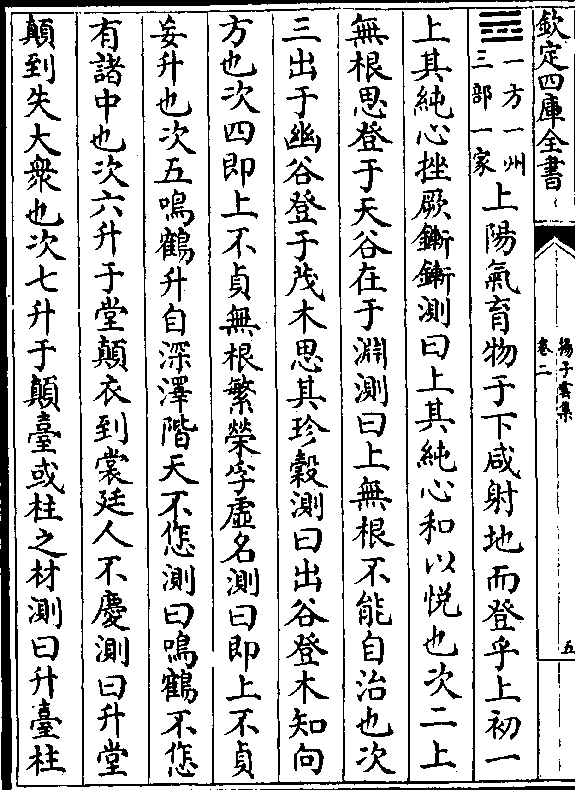 欽定四庫全書
揚子雲集
卷二
五
一方一州
三部一家
上陽氣育物于下咸射地而登乎上初一
上其純心挫厥鏩鏩測曰上其純心和以悅也次二上
無根思登于天谷在于淵測曰上無根不能自治也次
三出于幽谷登于茂木思其珍穀測曰出谷登木知向
方也次四即上不貞無根繁榮孚虛名測曰即上不貞
妄升也次五鳴鶴升自深澤階天不㤰測曰鳴鶴不㤰
有諸中也次六升于堂顛衣到裳廷人不慶測曰升堂
顛到失大衆也次七升于顛臺或柱之材測曰升臺柱